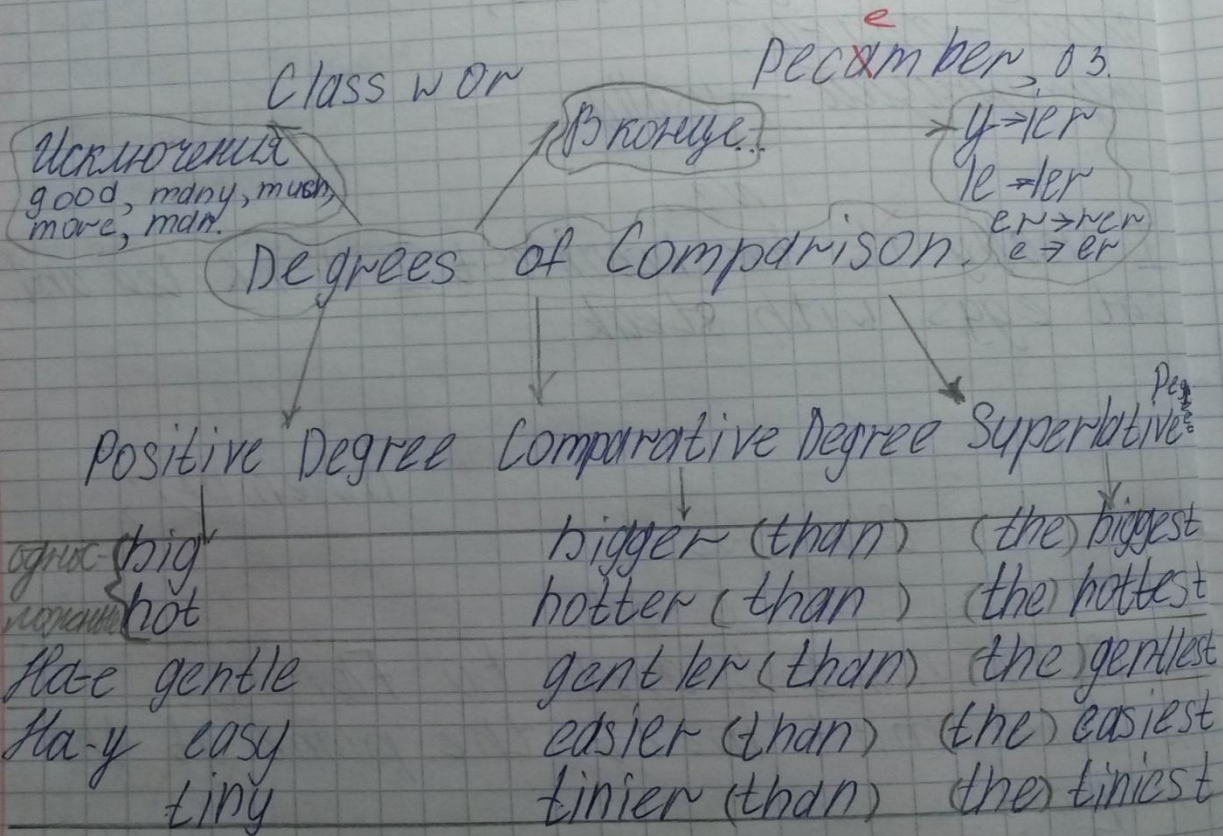 Class wor
Decamber, 03.
e
Исключения
good, many, much,
more, man.
В конце...
y→ier
le→ler
er→rer
e→er
Degrees of Comparison.
Positive Degree Comparative Degree Superlative
однос- big bigger (than) (the) biggest
ложные hot hotter (than) (the) hottest
На-е gentle gentler (than) (the) gentlest
На-y easy easier (than) (the) easiest
tiny tinier (than) (the) tiniest